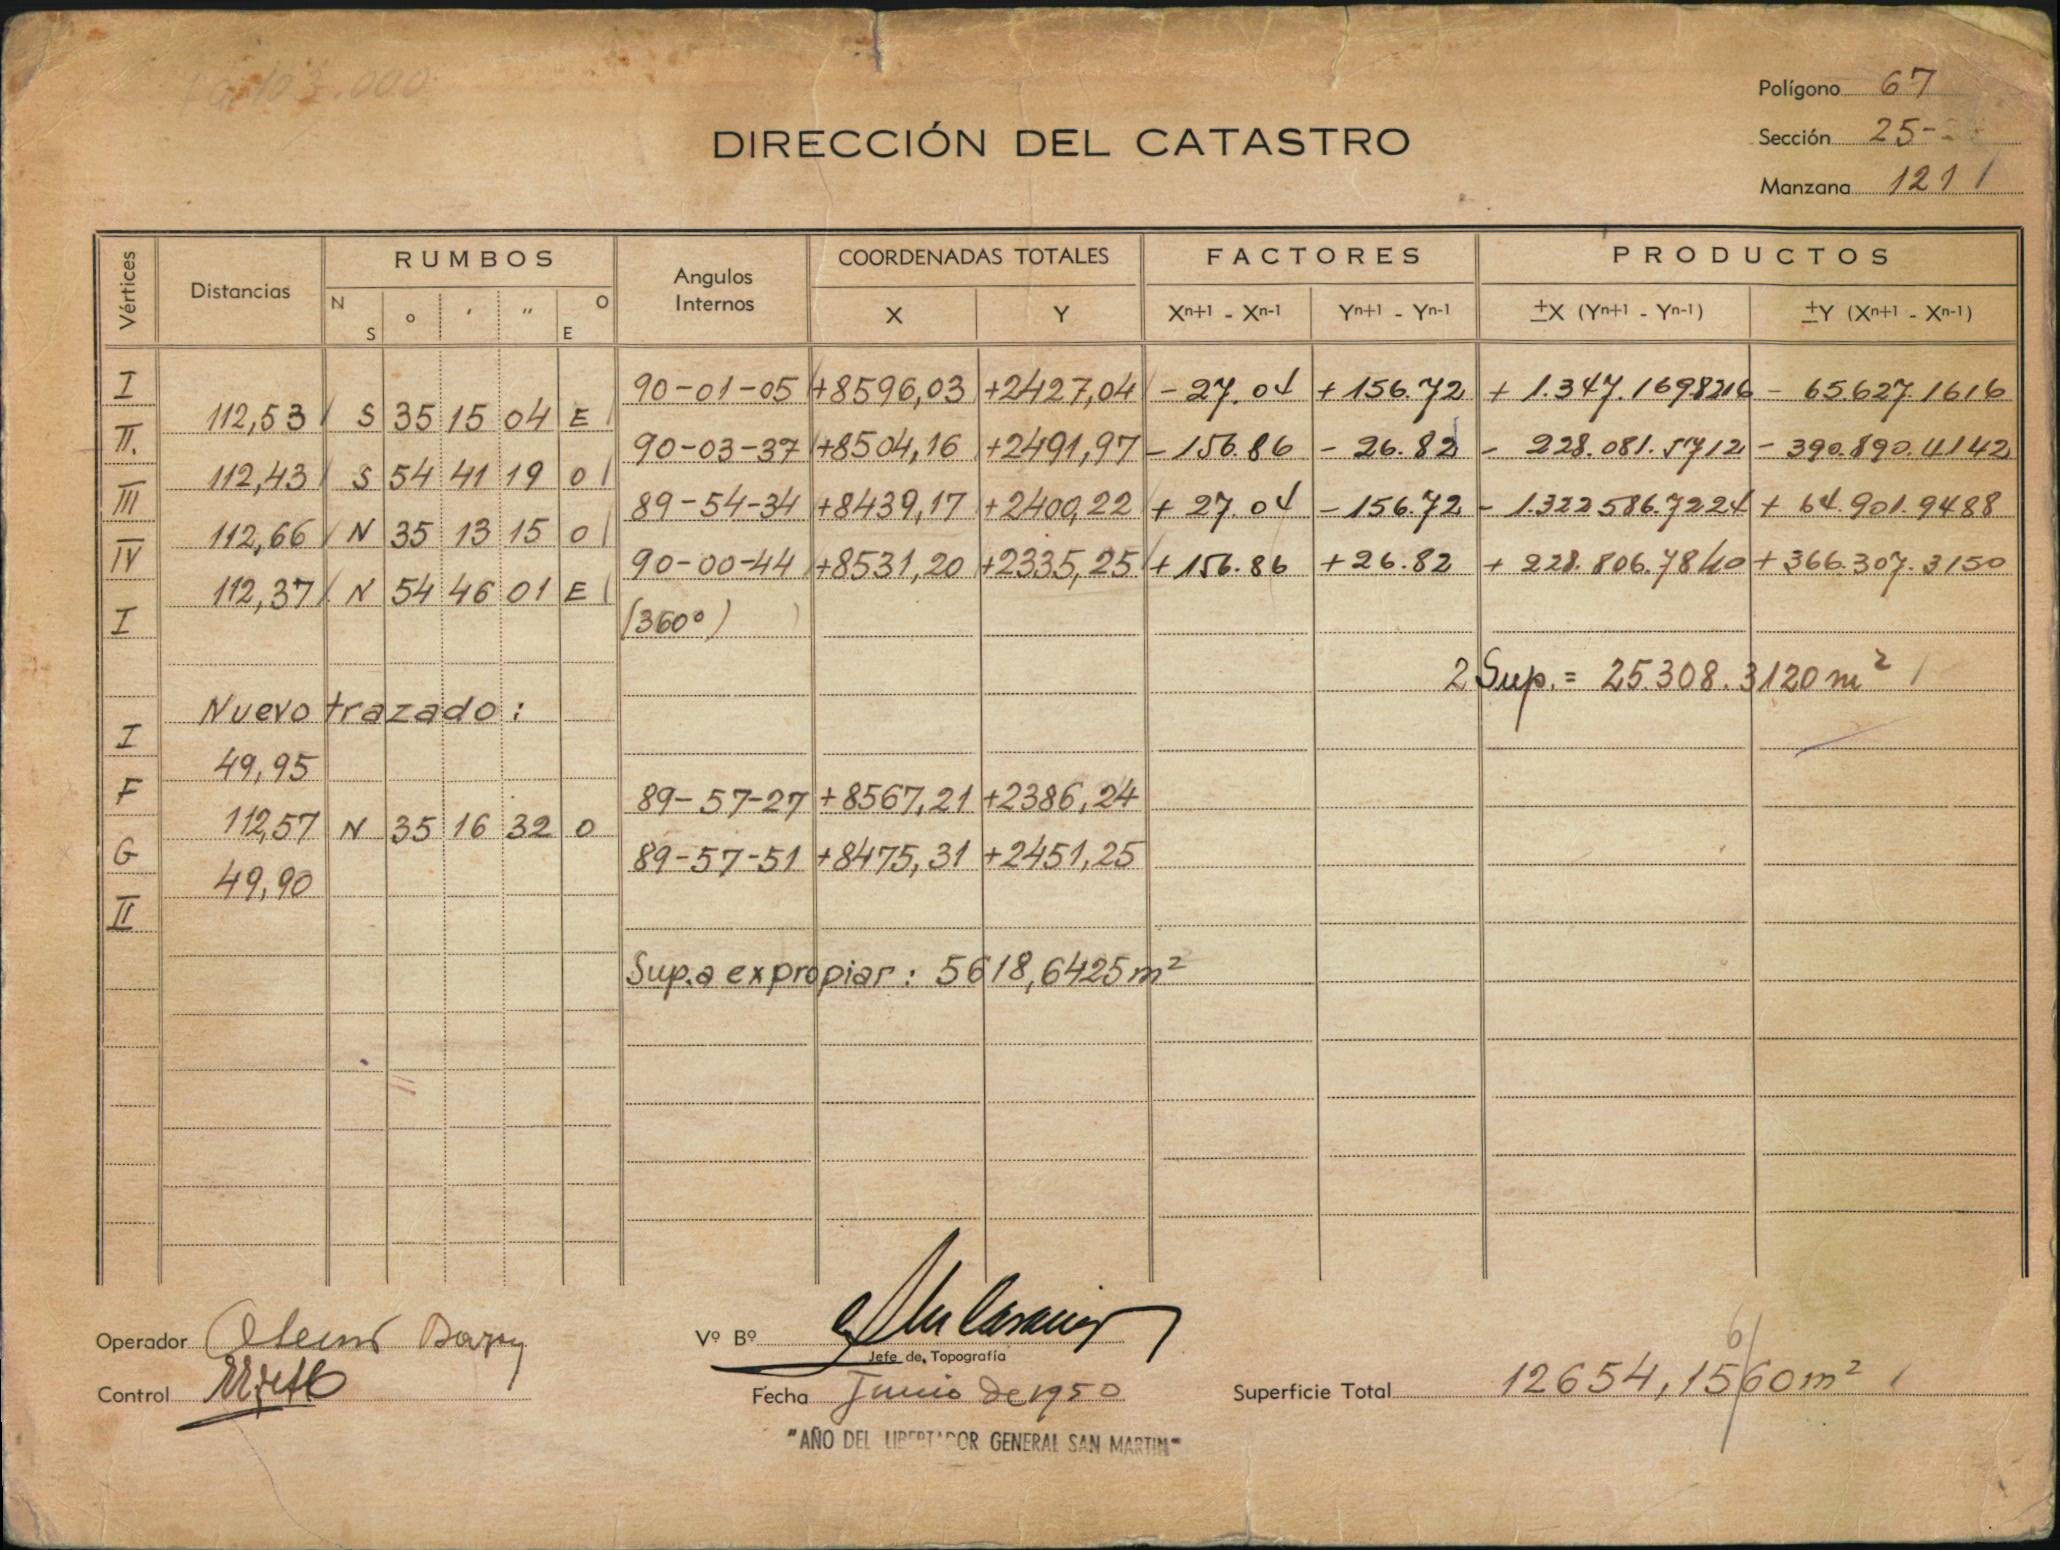 DIRECCIÓN DEL CATASTRO
Polígono 67
Sección 25-
Manzana 121
Vértices Distancias RUMBOS Angulos Internos COORDENADAS TOTALES FACTORES PRODUCTOS
N S ° ' " O E X Y Xn+1 - Xn-1 Yn+1 - Yn-1 ±X (Yn+1 - Yn-1) ±Y (Xn+1 - Xn-1)
I 90-01-05 +8596,03 +2427,04 - 27.04 + 156.72 + 1.347.1698216 - 65.627.1616
112,53 S 35 15 04 E
II. 90-03-37 +8504,16 +2491,97 - 156.86 - 26.82 - 228.081.5712 - 390.890.4142
112,43 S 54 41 19 O
III 89-54-34 +8439,17 +2400,22 + 27.04 - 156.72 - 1.322586.7224 + 64.901.9488
112,66 N 35 13 15 O
IV 90-00-44 +8531,20 +2335,25 + 156.86 + 26.82 + 228.806.7840 + 366.307.3150
112,37 N 54 46 01 E
I (360°)
2 Sup. = 25.308.3120 m²
Nuevo trazado:
I
49,95
F 89-57-27 +8567,21 +2386,24
112,57 N 35 16 32 O
G 89-57-51 +8475,31 +2451,25
49,90
II
Sup. a expropiar: 5618,6425 m²
Operador
Vº Bº
Jefe de Topografía
Control
Fecha Junio de 1950
Superficie Total 12654,1560 m²
6
"AÑO DEL LIBERTADOR GENERAL SAN MARTIN"